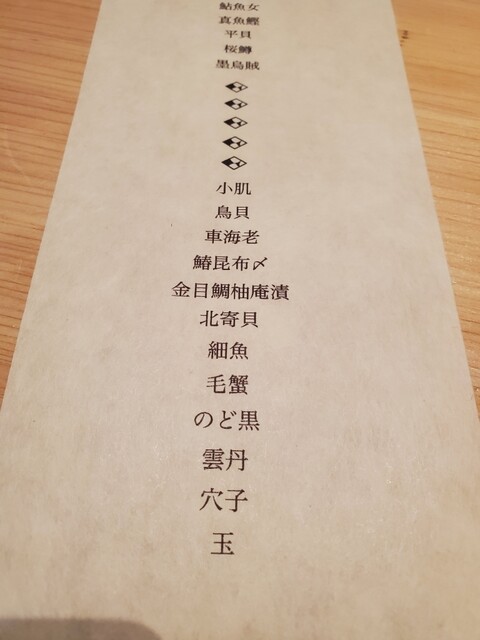 鮎魚女
真魚鰹
平貝
桜鱒
墨烏賊
小肌
鳥貝
車海老
鰆昆布〆
金目鯛柚庵漬
北寄貝
細魚
毛蟹
のど黒
雲丹
穴子
玉